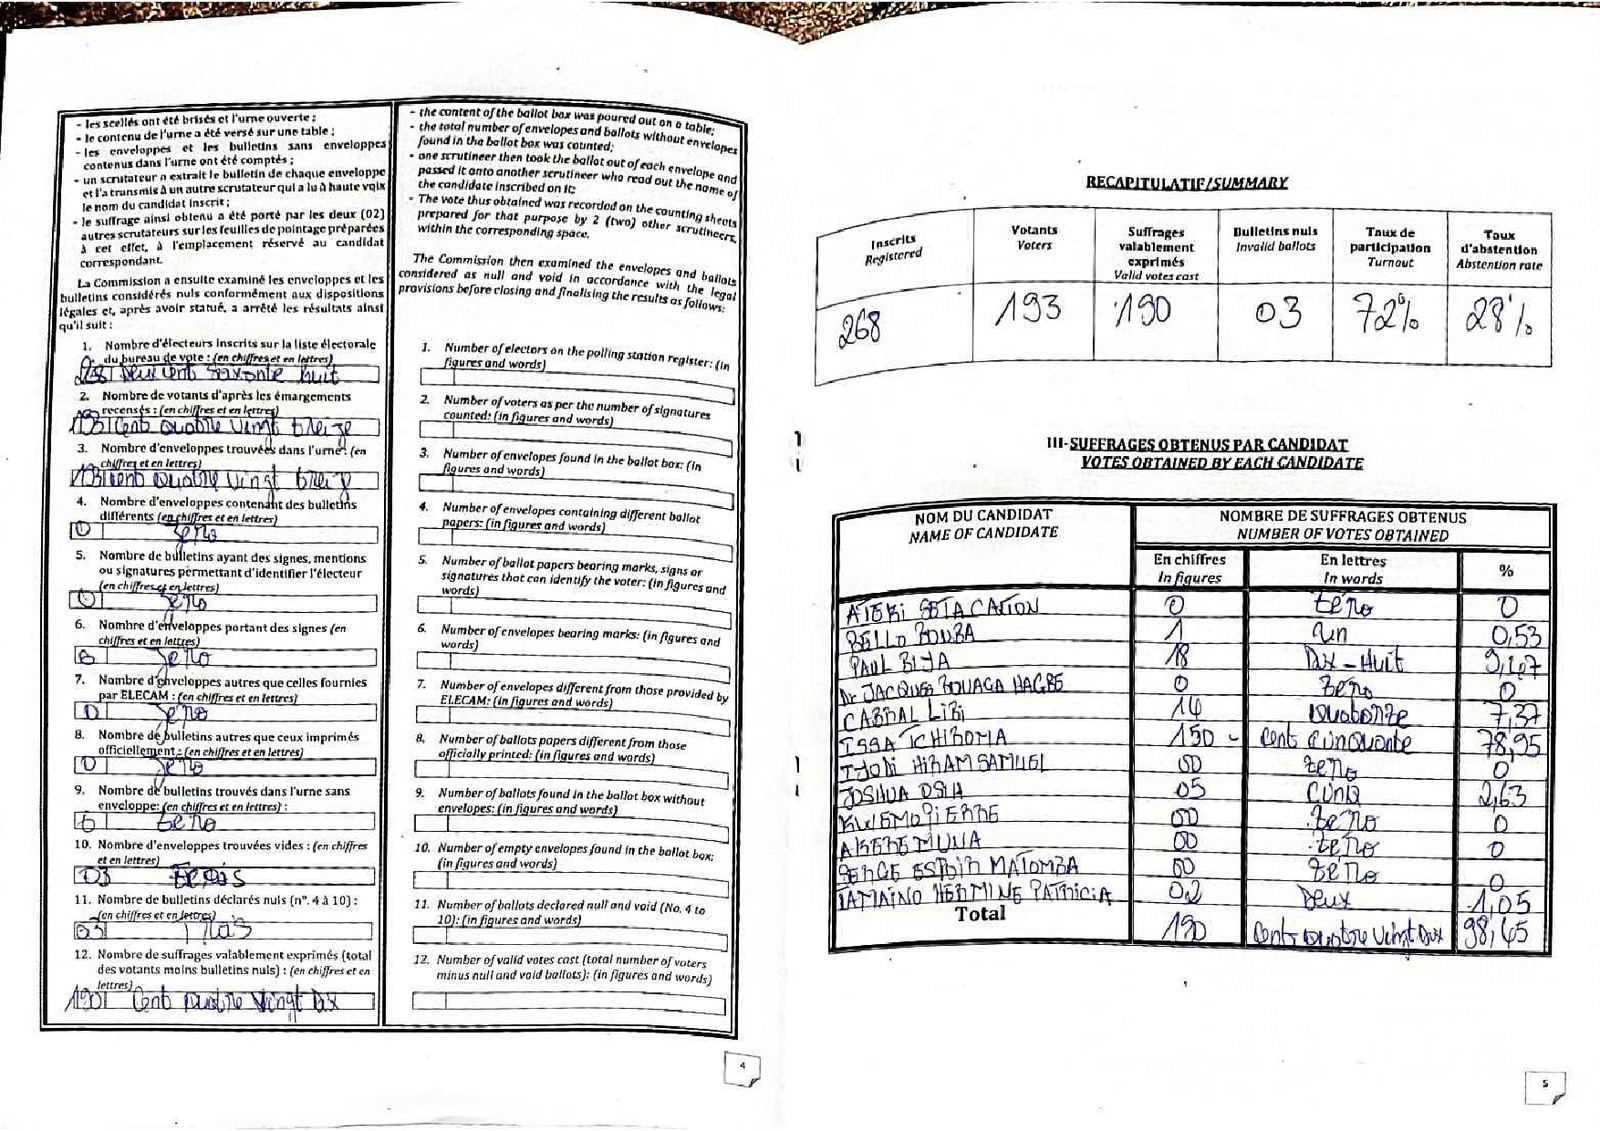 - les scellés ont été brisés et l'urne ouverte ;
- le contenu de l'urne a été versé sur une table ;
- les enveloppes et les bulletins sans enveloppes
contenus dans l'urne ont été comptés ;
- un scrutateur a extrait le bulletin de chaque enveloppe
et l'a transmis à un autre scrutateur qui a lu à haute voix
le nom du candidat inscrit ;
- le suffrage ainsi obtenu a été porté par les deux (02)
autres scrutateurs sur les feuilles de pointage préparées
à cet effet, à l'emplacement réservé au candidat
correspondant.
La Commission a ensuite examiné les enveloppes et les
bulletins considérés nuls conformément aux dispositions
légales et, après avoir statué, a arrêté les résultats ainsi
qu'il suit :
1. Nombre d'électeurs inscrits sur la liste électorale
du bureau de vote : (en chiffres et en lettres)
268 Deux cent soixante huit
2. Nombre de votants d'après les émargements
recensés : (en chiffres et en lettres)
193 Cent quatre vingt treize
3. Nombre d'enveloppes trouvées dans l'urne: (en
chiffres et en lettres)
193 cent quatre vingt treize
4. Nombre d'enveloppes contenant des bulletins
différents (en chiffres et en lettres)
0 zero
5. Nombre de bulletins ayant des signes, mentions
ou signatures permettant d'identifier l'électeur
(en chiffres et en lettres)
0 zero
6. Nombre d'enveloppes portant des signes (en
chiffres et en lettres)
0 zero
7. Nombre d'enveloppes autres que celles fournies
par ELECAM : (en chiffres et en lettres)
0 zero
8. Nombre de bulletins autres que ceux imprimés
officiellement : (en chiffres et en lettres)
0 zero
9. Nombre de bulletins trouvés dans l'urne sans
enveloppe: (en chiffres et en lettres) :
0 zero
10. Nombre d'enveloppes trouvées vides : (en chiffres
et en lettres)
03
11. Nombre de bulletins déclarés nuls (n°. 4 à 10) :
(en chiffres et en lettres)
03 Trois
12. Nombre de suffrages valablement exprimés (total
des votants moins bulletins nuls) : (en chiffres et en
lettres)
190 Cent quatre vingt dix
- the content of the ballot box was poured out on a table;
- the total number of envelopes and ballots without envelopes
found in the ballot box was counted;
- one scrutineer then took the ballot out of each envelope and
passed it onto another scrutineer who read out the name of
the candidate inscribed on it;
- The vote thus obtained was recorded on the counting sheets
prepared for that purpose by 2 (two) other scrutineers,
within the corresponding space.
The Commission then examined the envelopes and ballots
considered as null and void in accordance with the legal
provisions before closing and finalising the results as follows:
1. Number of electors on the polling station register: (in
figures and words)
2. Number of voters as per the number of signatures
counted: (in figures and words)
3. Number of envelopes found in the ballot box: (in
figures and words)
4. Number of envelopes containing different ballot
papers: (in figures and words)
5. Number of ballot papers bearing marks, signs or
signatures that can identify the voter: (in figures and
words)
6. Number of envelopes bearing marks: (in figures and
words)
7. Number of envelopes different from those provided by
ELECAM: (in figures and words)
8. Number of ballots papers different from those
officially printed: (in figures and words)
9. Number of ballots found in the ballot box without
envelopes: (in figures and words)
10. Number of empty envelopes found in the ballot box:
(in figures and words)
11. Number of ballots declared null and void (No. 4 to
10): (in figures and words)
12. Number of valid votes cast (total number of voters
minus null and void ballots): (in figures and words)
4
RECAPITULATIF/SUMMARY
Inscrits Registered Votants Voters Suffrages valablement exprimés Valid votes cast Bulletins nuls Invalid ballots Taux de participation Turnout Taux d'abstention Abstention rate
268 193 190 03 72% 28%
III-SUFFRAGES OBTENUS PAR CANDIDAT
VOTES OBTAINED BY EACH CANDIDATE
NOM DU CANDIDAT NOMBRE DE SUFFRAGES OBTENUS
NAME OF CANDIDATE NUMBER OF VOTES OBTAINED
En chiffres En lettres %
In figures In words
ATEKI SETA CAXTON 0 zero 0
BELLO BOUBA 1 un 0,53
PAUL BIYA 18 Dix-Huit 9,47
Dr JACQUES BOUAGA HAGBE 0 zero 0
CABRAL LIBI 14 Quatorze 7,37
ISSA TCHIROMA 150 - Cent Cinquante 78,95
IYODI HIRAM SAMUEL 00 zero 0
JOSHUA OSIH 05 Cinq 2,63
KWEMO PIERRE 00 zero 0
AKERE MUNA 00 zero 0
SERGE ESPOIR MATOMBA 00 zero 0
TAMAINO HERMINE PATRICIA 02 Deux 1,05
Total 190 Cent quatre vingt dix 98,45
5